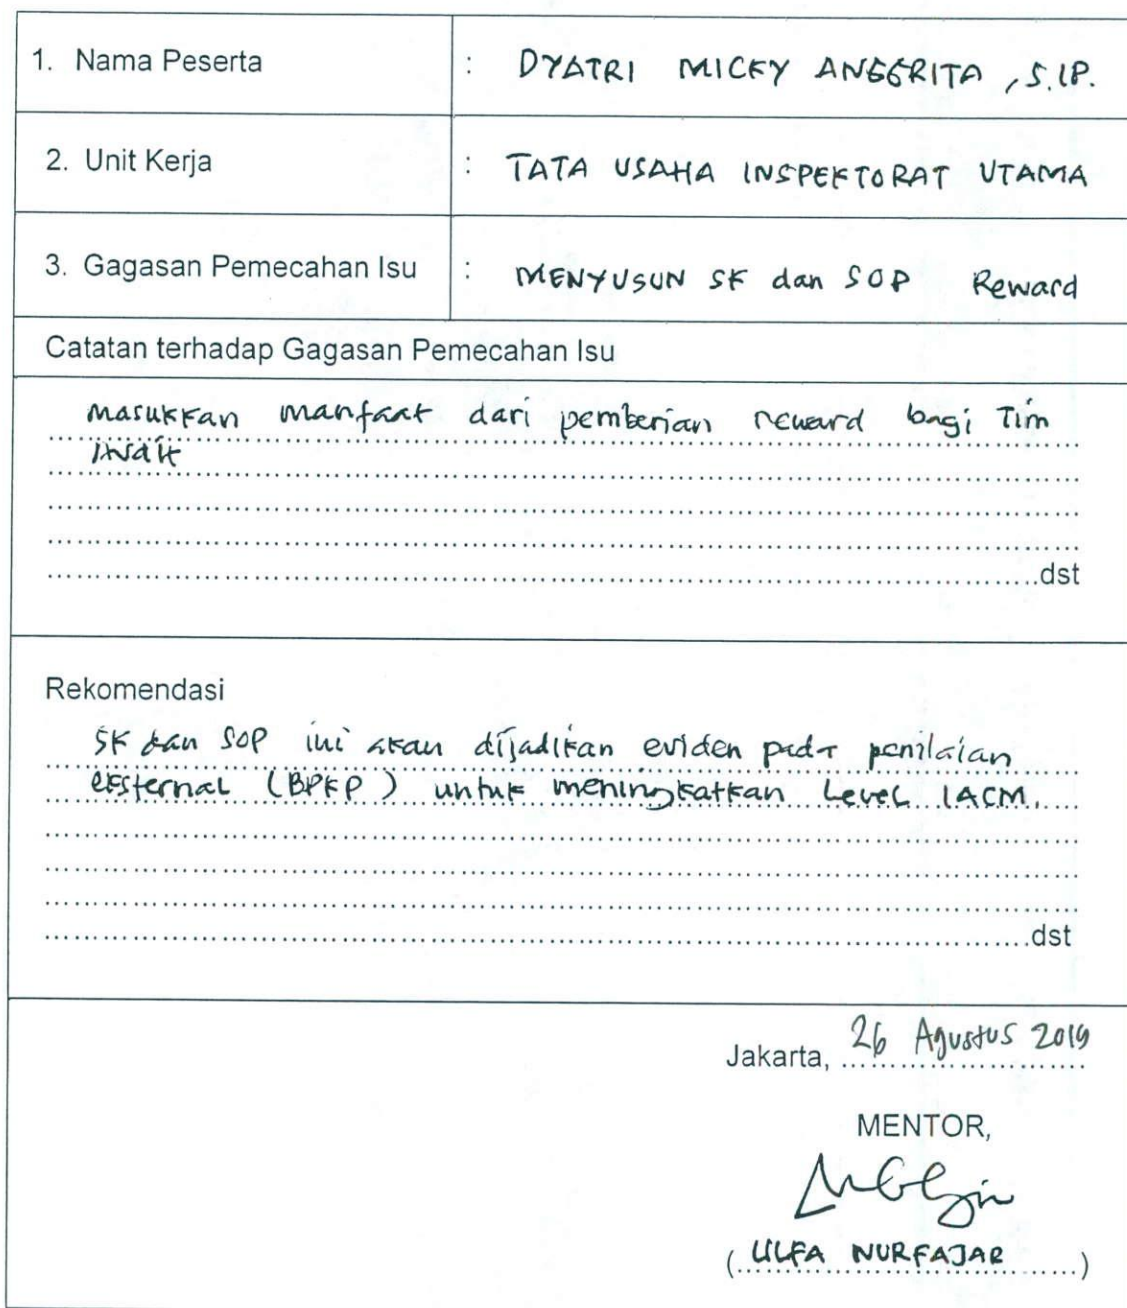 1. Nama Peserta : DYATRI MICKY ANGGRITA, S.IP.
2. Unit Kerja : TATA USAHA INSPEKTORAT UTAMA
3. Gagasan Pemecahan Isu : MENYUSUN SK dan SOP Reward
Catatan terhadap Gagasan Pemecahan Isu
Masukkan manfaat dari pemberian reward bagi Tim
........dst
Rekomendasi
SK dan SOP ini akan dijadikan eviden pada penilaian
eksternal (BPKP) untuk meningkatkan Level IACM.
........dst
Jakarta, 26 Agustus 2019
MENTOR,
(ULFA NURFAJAR)